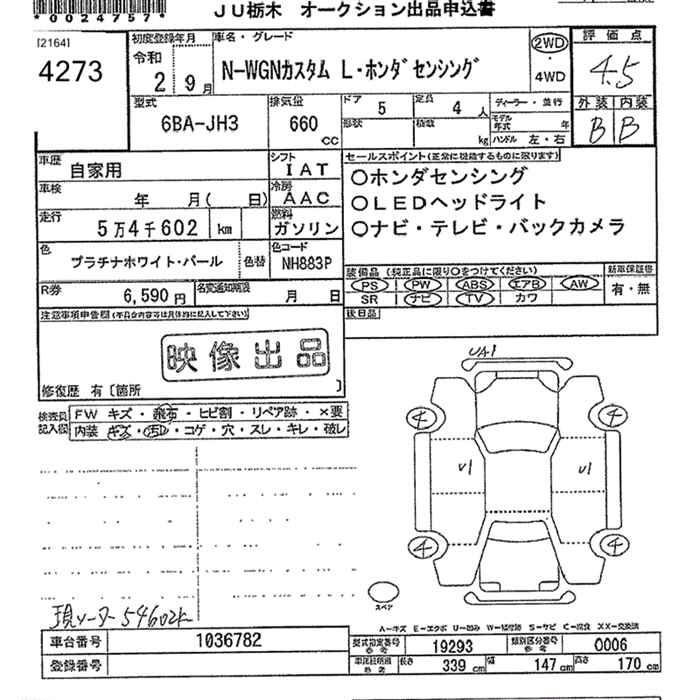 *0024757*
JU栃木 オークション出品申込書
[2164]
4273
初度登録年月
令和
2 9月
車名・グレード
N-WGNカスタム L・ホンダセンシング
2WD
・
4WD
評価点
4.5
外装 内装
B B
型式
6BA-JH3
排気量
660
CC
ドア 5
定員 4 人
形状
積載 kg
ディーラー・並行
モデル年式 年
ハンドル 左・右
車歴
自家用
シフト
IAT
車検
年 月( 日)
冷房
AAC
走行
5万4千602 km
燃料
ガソリン
色
プラチナホワイト・パール
色替
色コード
NH883P
R券
6,590円
名変通知期限
月 日
セールスポイント(正常に機能するものに限ります)
○ホンダセンシング
○LEDヘッドライト
○ナビ・テレビ・バックカメラ
装備品 (純正品に限り○をつけてください)
PS PW ABS エアB AW
SR ナビ TV カワ
新車保証書
有・無
後日品
注意事項申告欄(不具合内容等は具体的に記入して下さい)
映像出品
修復歴 有〔箇所 〕
検査員記入欄
FW キズ・飛石・ヒビ割・リペア跡・×要
内装 キズ・汚れ・コゲ・穴・スレ・キレ・破レ
UA1
4 4
U1 U1
4 4
スペア
現メーター54602K
A-キズ E-エクボ U-凹み W-補修跡 S-サビ C-腐食 XX-交換済
車台番号 1036782
登録番号
型式指定番号 参考 19293
類別区分番号 参考 0006
車両諸元 参考 長さ 339 cm 幅 147 cm 高さ 170 cm